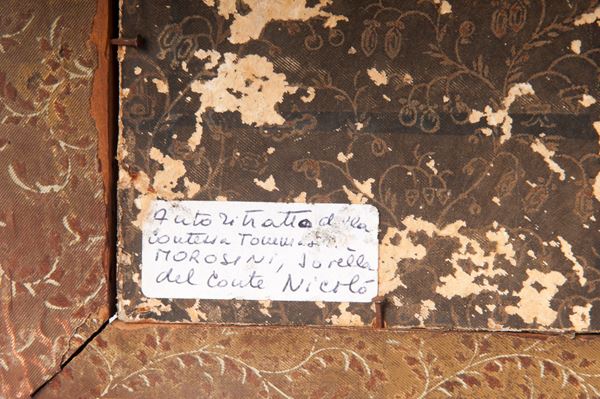 Autoritratto della
contessa Tommasini
MOROSINI, sorella
del Conte Nicolò